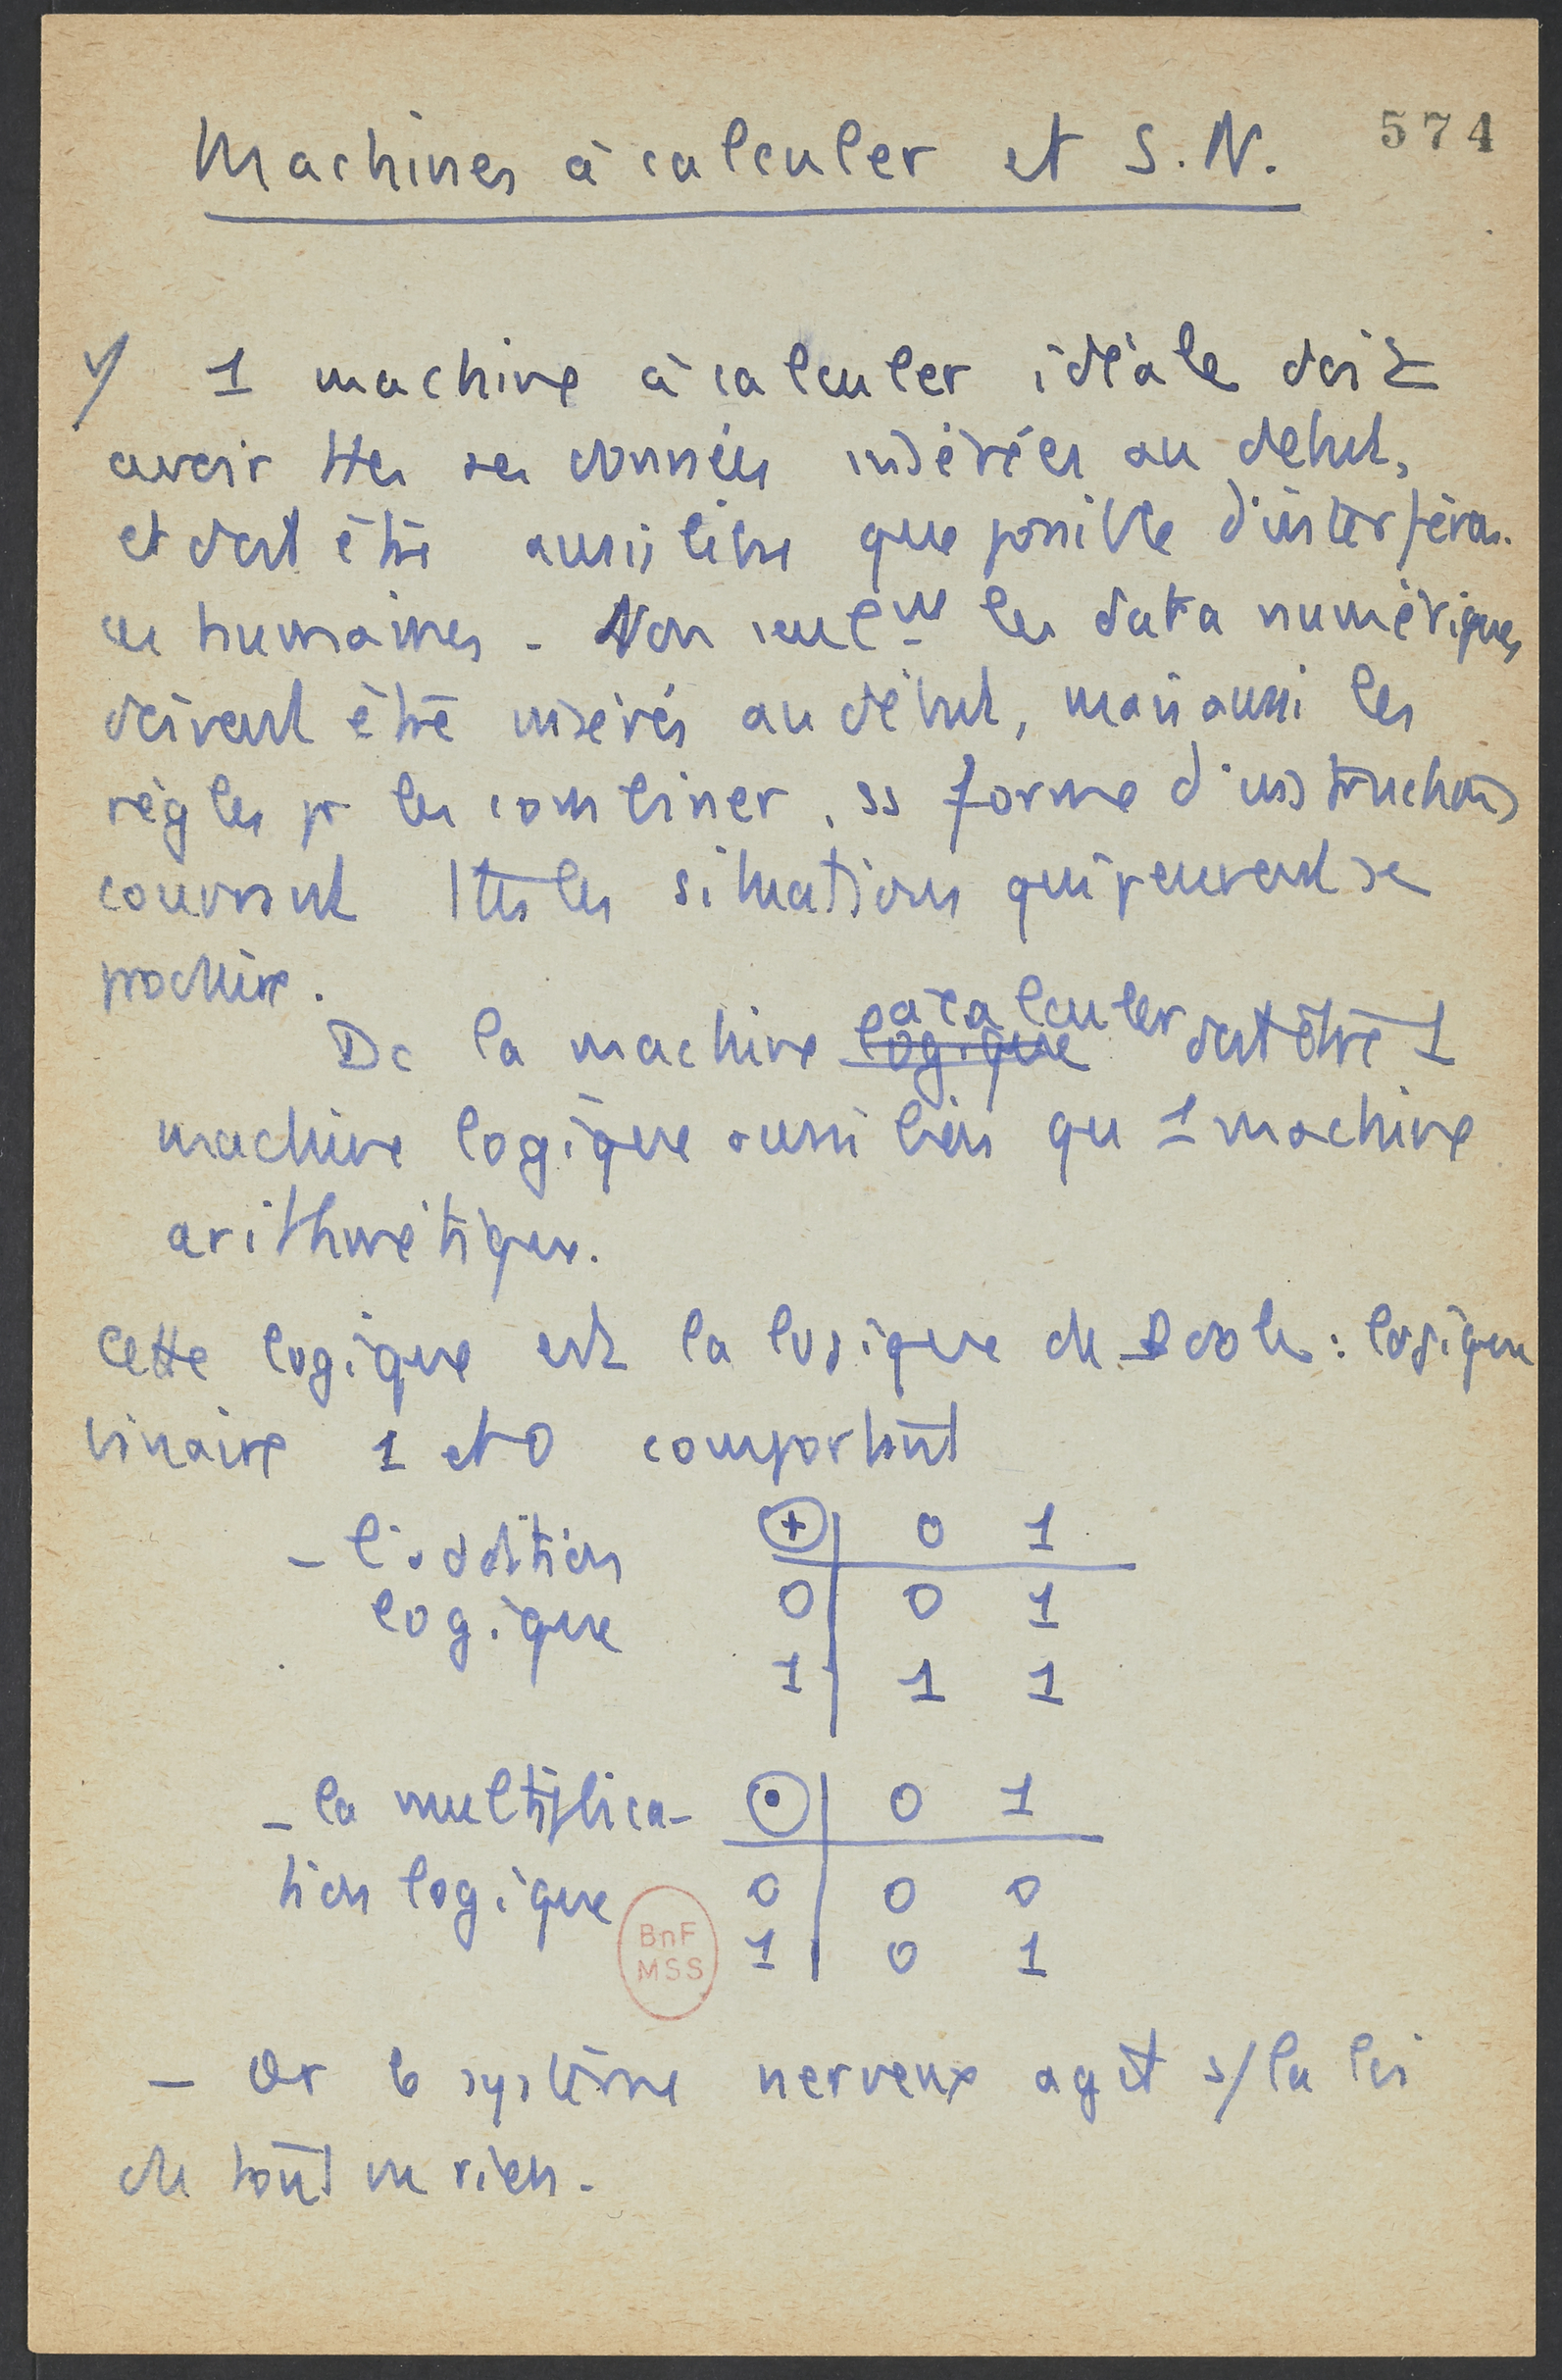 574
Machines à calculer et S.N.
1 machine à calculer idéale doit
avoir ttes ses données insérées au début,
et doit être aussi libre que possible d'interféren-
ces humaines - Non seulmt les data numériques
doivent être insérés au début, mais aussi les
règles pr les combiner, ss forme d'instructions
couvrant ttes les situations qui peuvent se
produire.
Dc la machine logique à calculer doit être 1
machine logique aussi bien qu 1 machine
arithmétique.
Cette logique est la logique de Boole : logique
binaire 1 et 0 comportant
- l'addition ⊕ | 0 1
logique 0 | 0 1
1 | 1 1
- la multiplica- ⊙ | 0 1
tion logique 0 | 0 0
1 | 0 1
BnF
MSS
- Or le système nerveux agit s/ la loi
de tout ou rien.